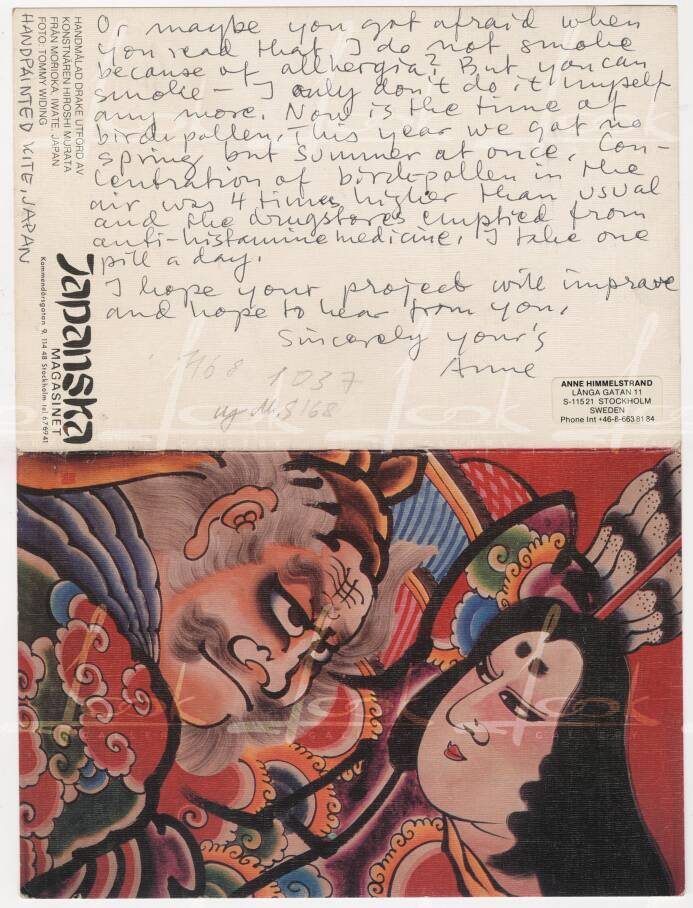 Or maybe you got afraid when
you read that I do not smoke
because of allhergia? But you can
smoke – I only don't do it myself
any more. Now is the time at
birch pollen. This year we got no
spring but summer at once. Con-
centration of birch-pollen in the
air was 4 times higher than usual
and the drugstores emptied from
anti-histamine medicine. I take one
pill a day.
I hope your project will improve
and hope to hear from you.
Sincerely your's
Anne
1037
ANNE HIMMELSTRAND
LÅNGA GATAN 11
S-11521 STOCKHOLM
SWEDEN
Phone Int +46-8-663 81 84
HANDMÅLAD DRAKE UTFÖRD AV
KONSTNÄREN HIROSHI MURATA
FRÅN MORIOKA, IWATE, JAPAN
FOTO: TOMMY WIDING
HANDPAINTED KITE, JAPAN
Japanska
MAGASINET
Kommendörsgatan 9, 114 48 Stockholm tel. 67 69 41
look
GALLERY